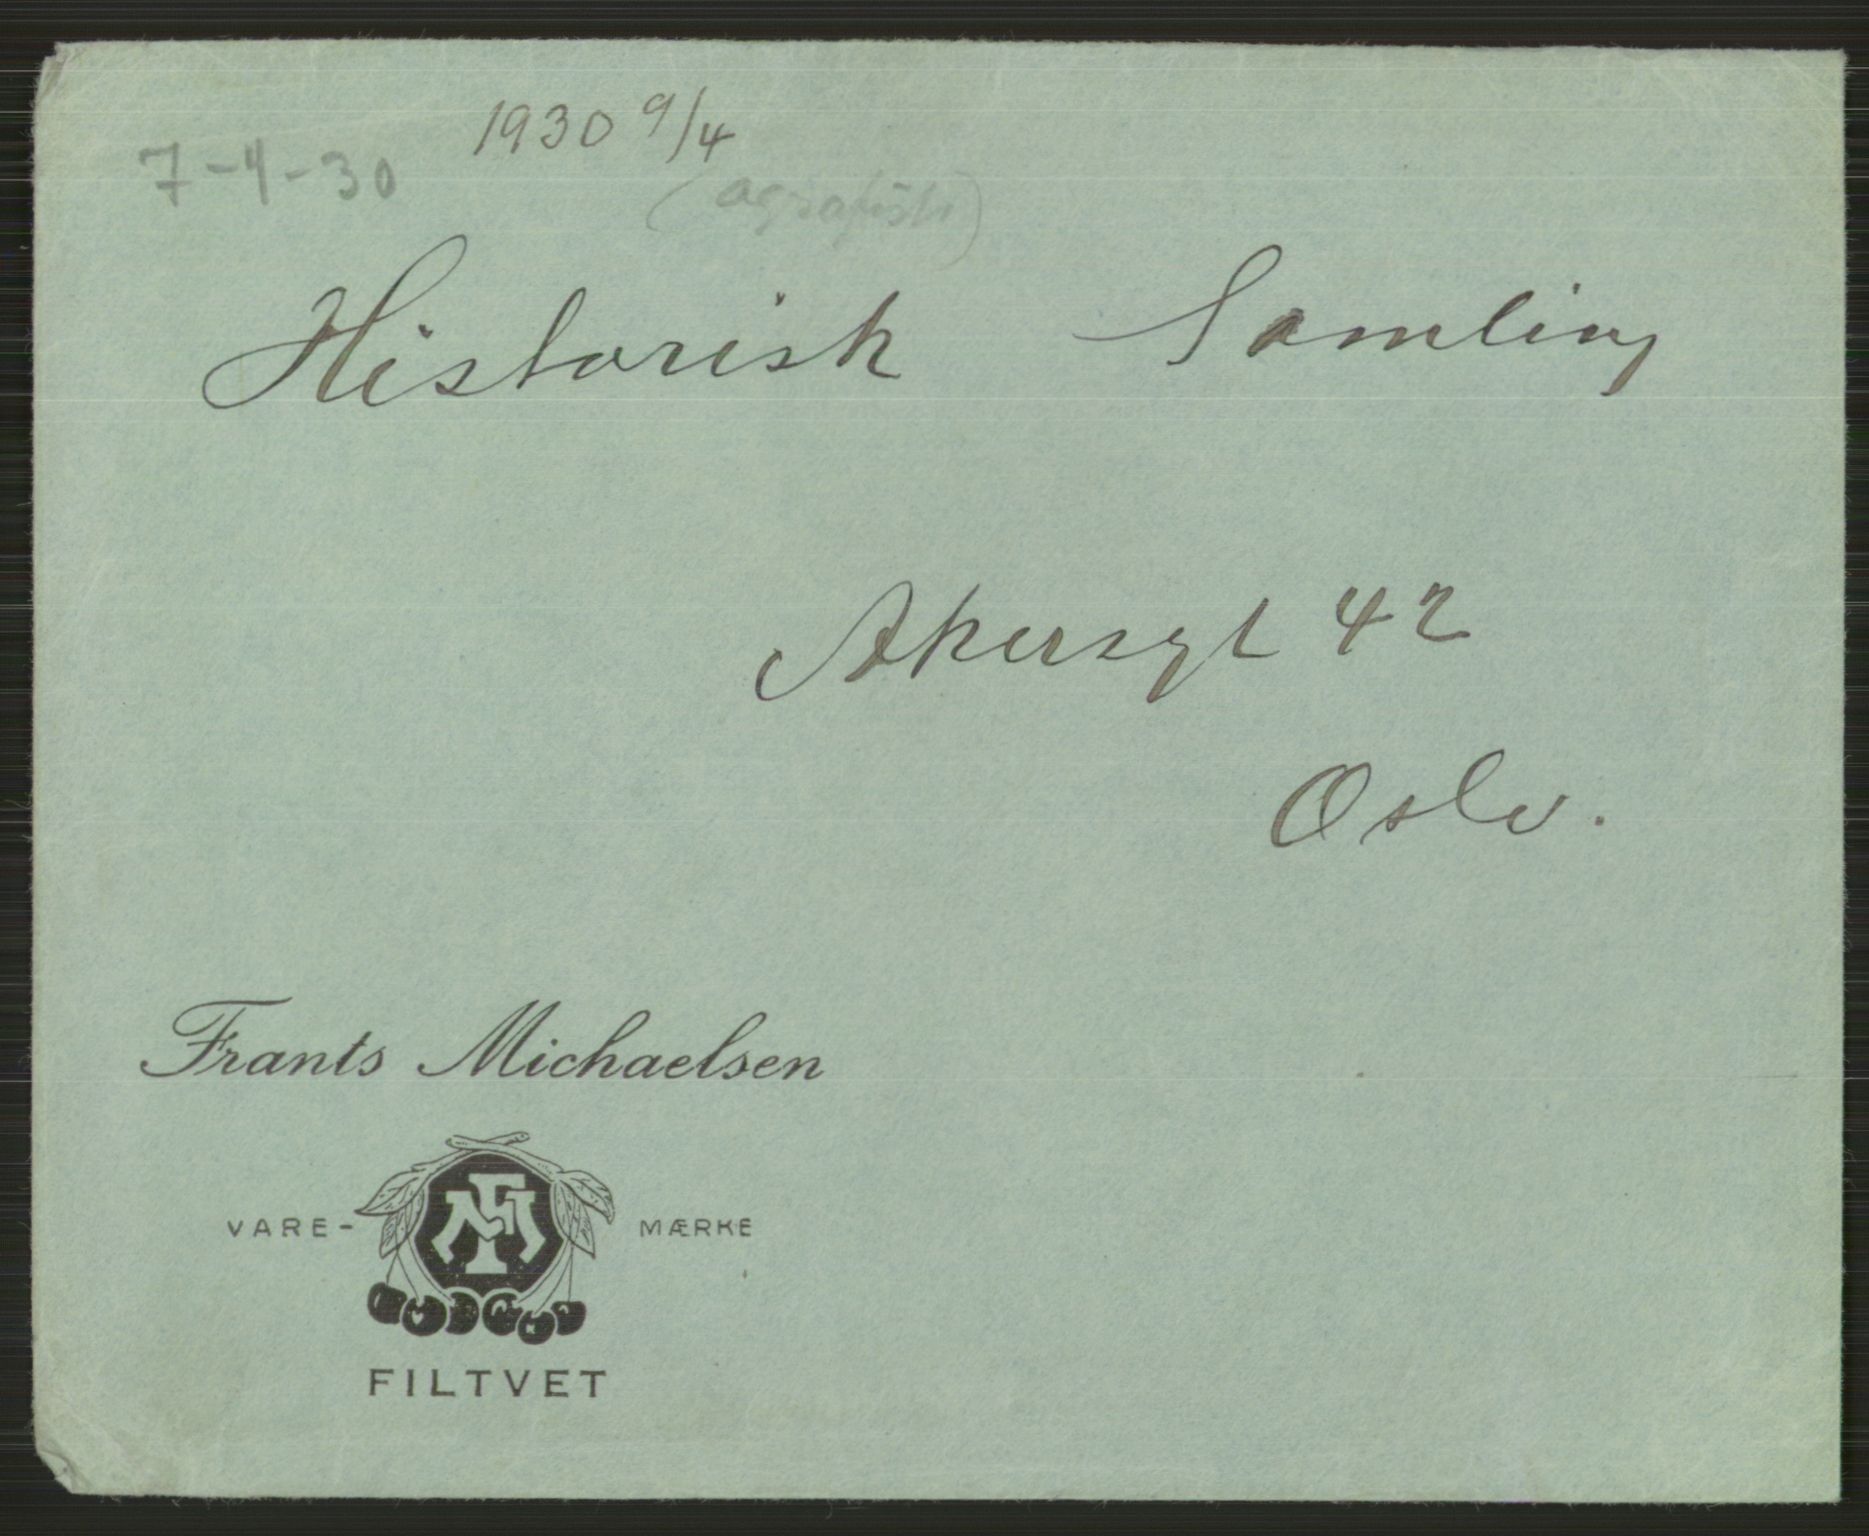 1930 9/4
7-4-30
Historisk Samling
Akersgt 42
Oslo.
Frants Michaelsen
VARE- FM MÆRKE
FILTVET